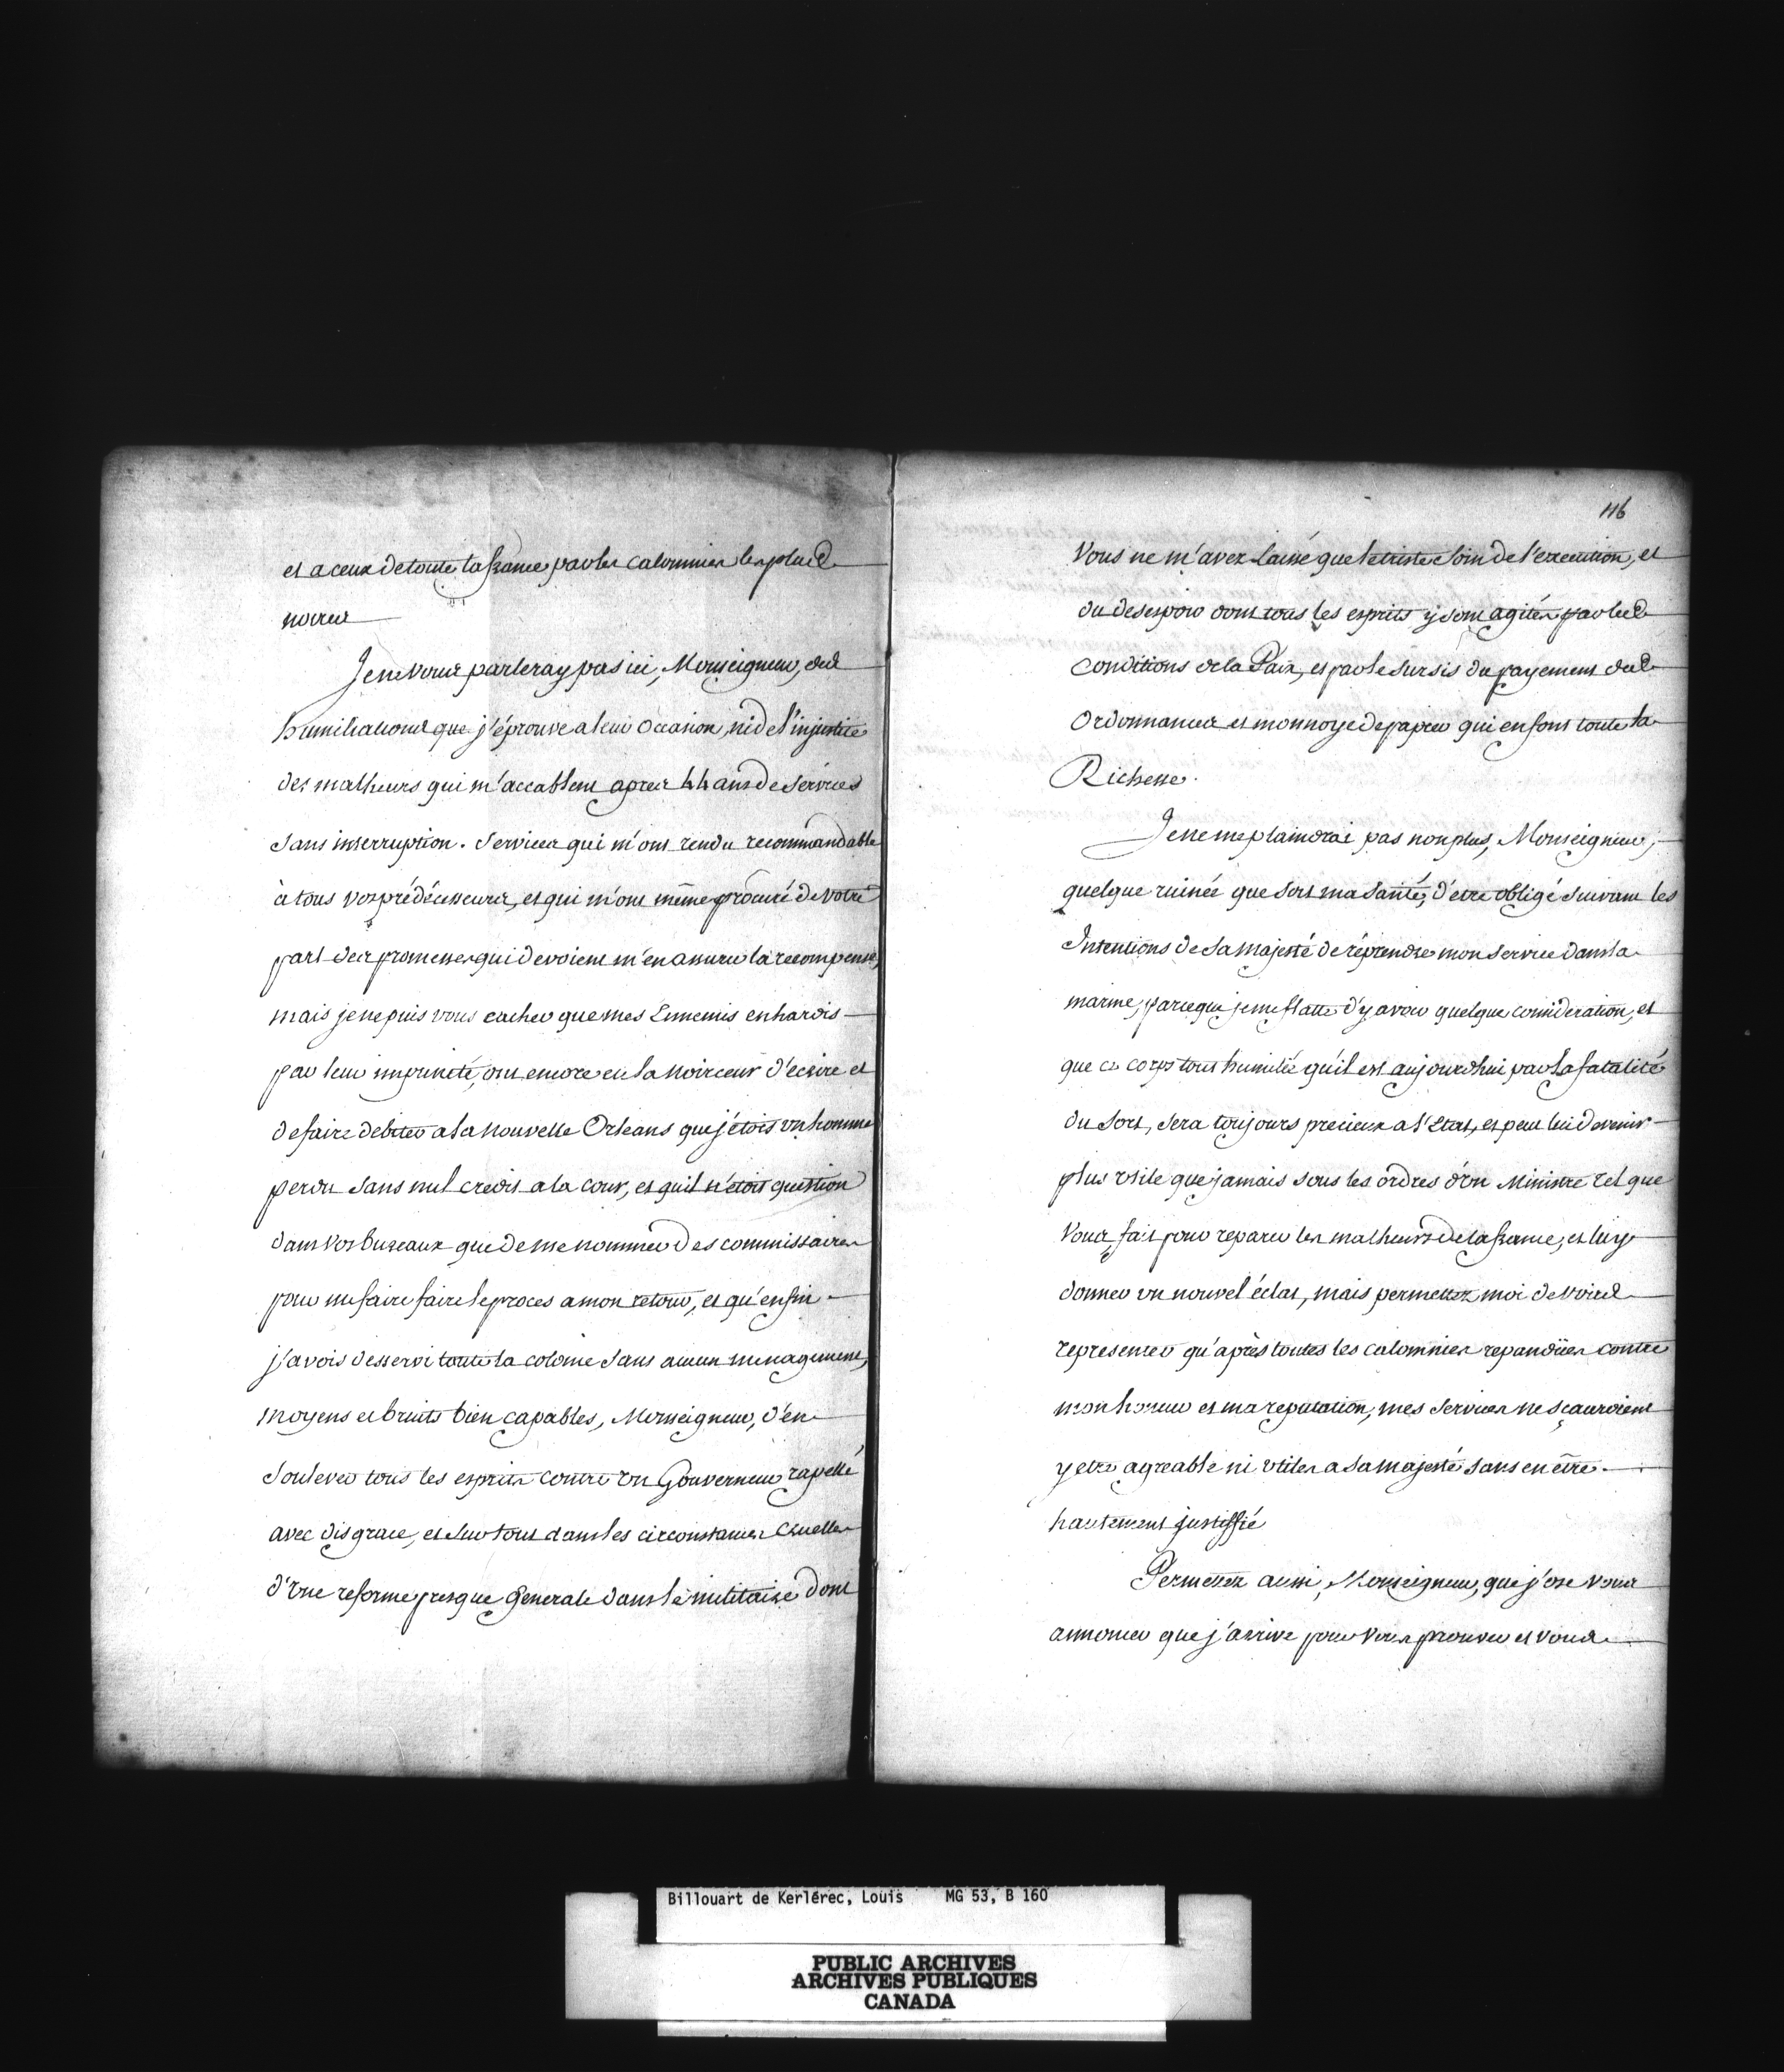 et a ceux de toute la france par les calomnies les plus
noires
Je ne vous parleray pas ici, Monseigneur, des
humiliations que j'éprouve a leur occasion, ni de l'injustice
des malheurs qui m'accablent apres 44 ans de services
sans interruption. services qui m'ont rendu recommandable
à tous vos prédécesseurs, et qui m'ont même procuré de votre
part des promesses qui devoient m'en assurer la recompense,
mais je ne puis vous cacher que mes Ennemis enhardis
par leur impunité, ont encore eu la noirceur d'écrire et
de faire debiter a la nouvelle Orleans que j'étois un homme
perdu sans nul credit a la cour, et qu'il n'étoit question
dans vos bureaux que de me nommer des commissaires
pour me faire faire le proces a mon retour, et qu'enfin
j'avois desservi toute la colonie sans aucun menagement,
moyens et bruits bien capables, Monseigneur, d'en
soulever tous les esprits contre un Gouverneur rapellé
avec disgrace, et sur tout dans les circonstances cruelles
d'une reforme presque generale dans le militaire dont
116
Vous ne m'avez laissé que le triste soin de l'execution, et
du desespoir dont tous les esprits y sont agités par les
Conditions de la Paix, et par le sursis du payement des
Ordonnances et monnoye de papier qui en font toute la
Richesse.
Je ne me plaindrai pas non plus, Monseigneur,
quelque ruinée que soit ma santé, d'etre obligé suivant les
Intentions de sa majesté de réprendre mon service dans la
marine, parceque je me flatte d'y avoir quelque consideration, et
que ce corps tout humilié qu'il est aujourdhui par la fatalité
du sort, sera toujours precieux a l'Etat, et peut lui devenir
plus utile que jamais sous les ordres d'un Ministre tel que
Vous, fait pour reparer les malheurs de la france, et luy
donner un nouvel éclat, mais permettez moi de vous
representer qu'après toutes les calomnies repandües contre
mon honneur et ma reputation, mes services ne sçauroient
y etre agreable ni utiles a sa majesté sans en être
hautement justiffié
Permettez aussi, Monseigneur, que j'ose vous
annoncer que j'arrive pour vous prouver et vous
Billouart de Kerlérec, Louis MG 53, B 160
PUBLIC ARCHIVES
ARCHIVES PUBLIQUES
CANADA